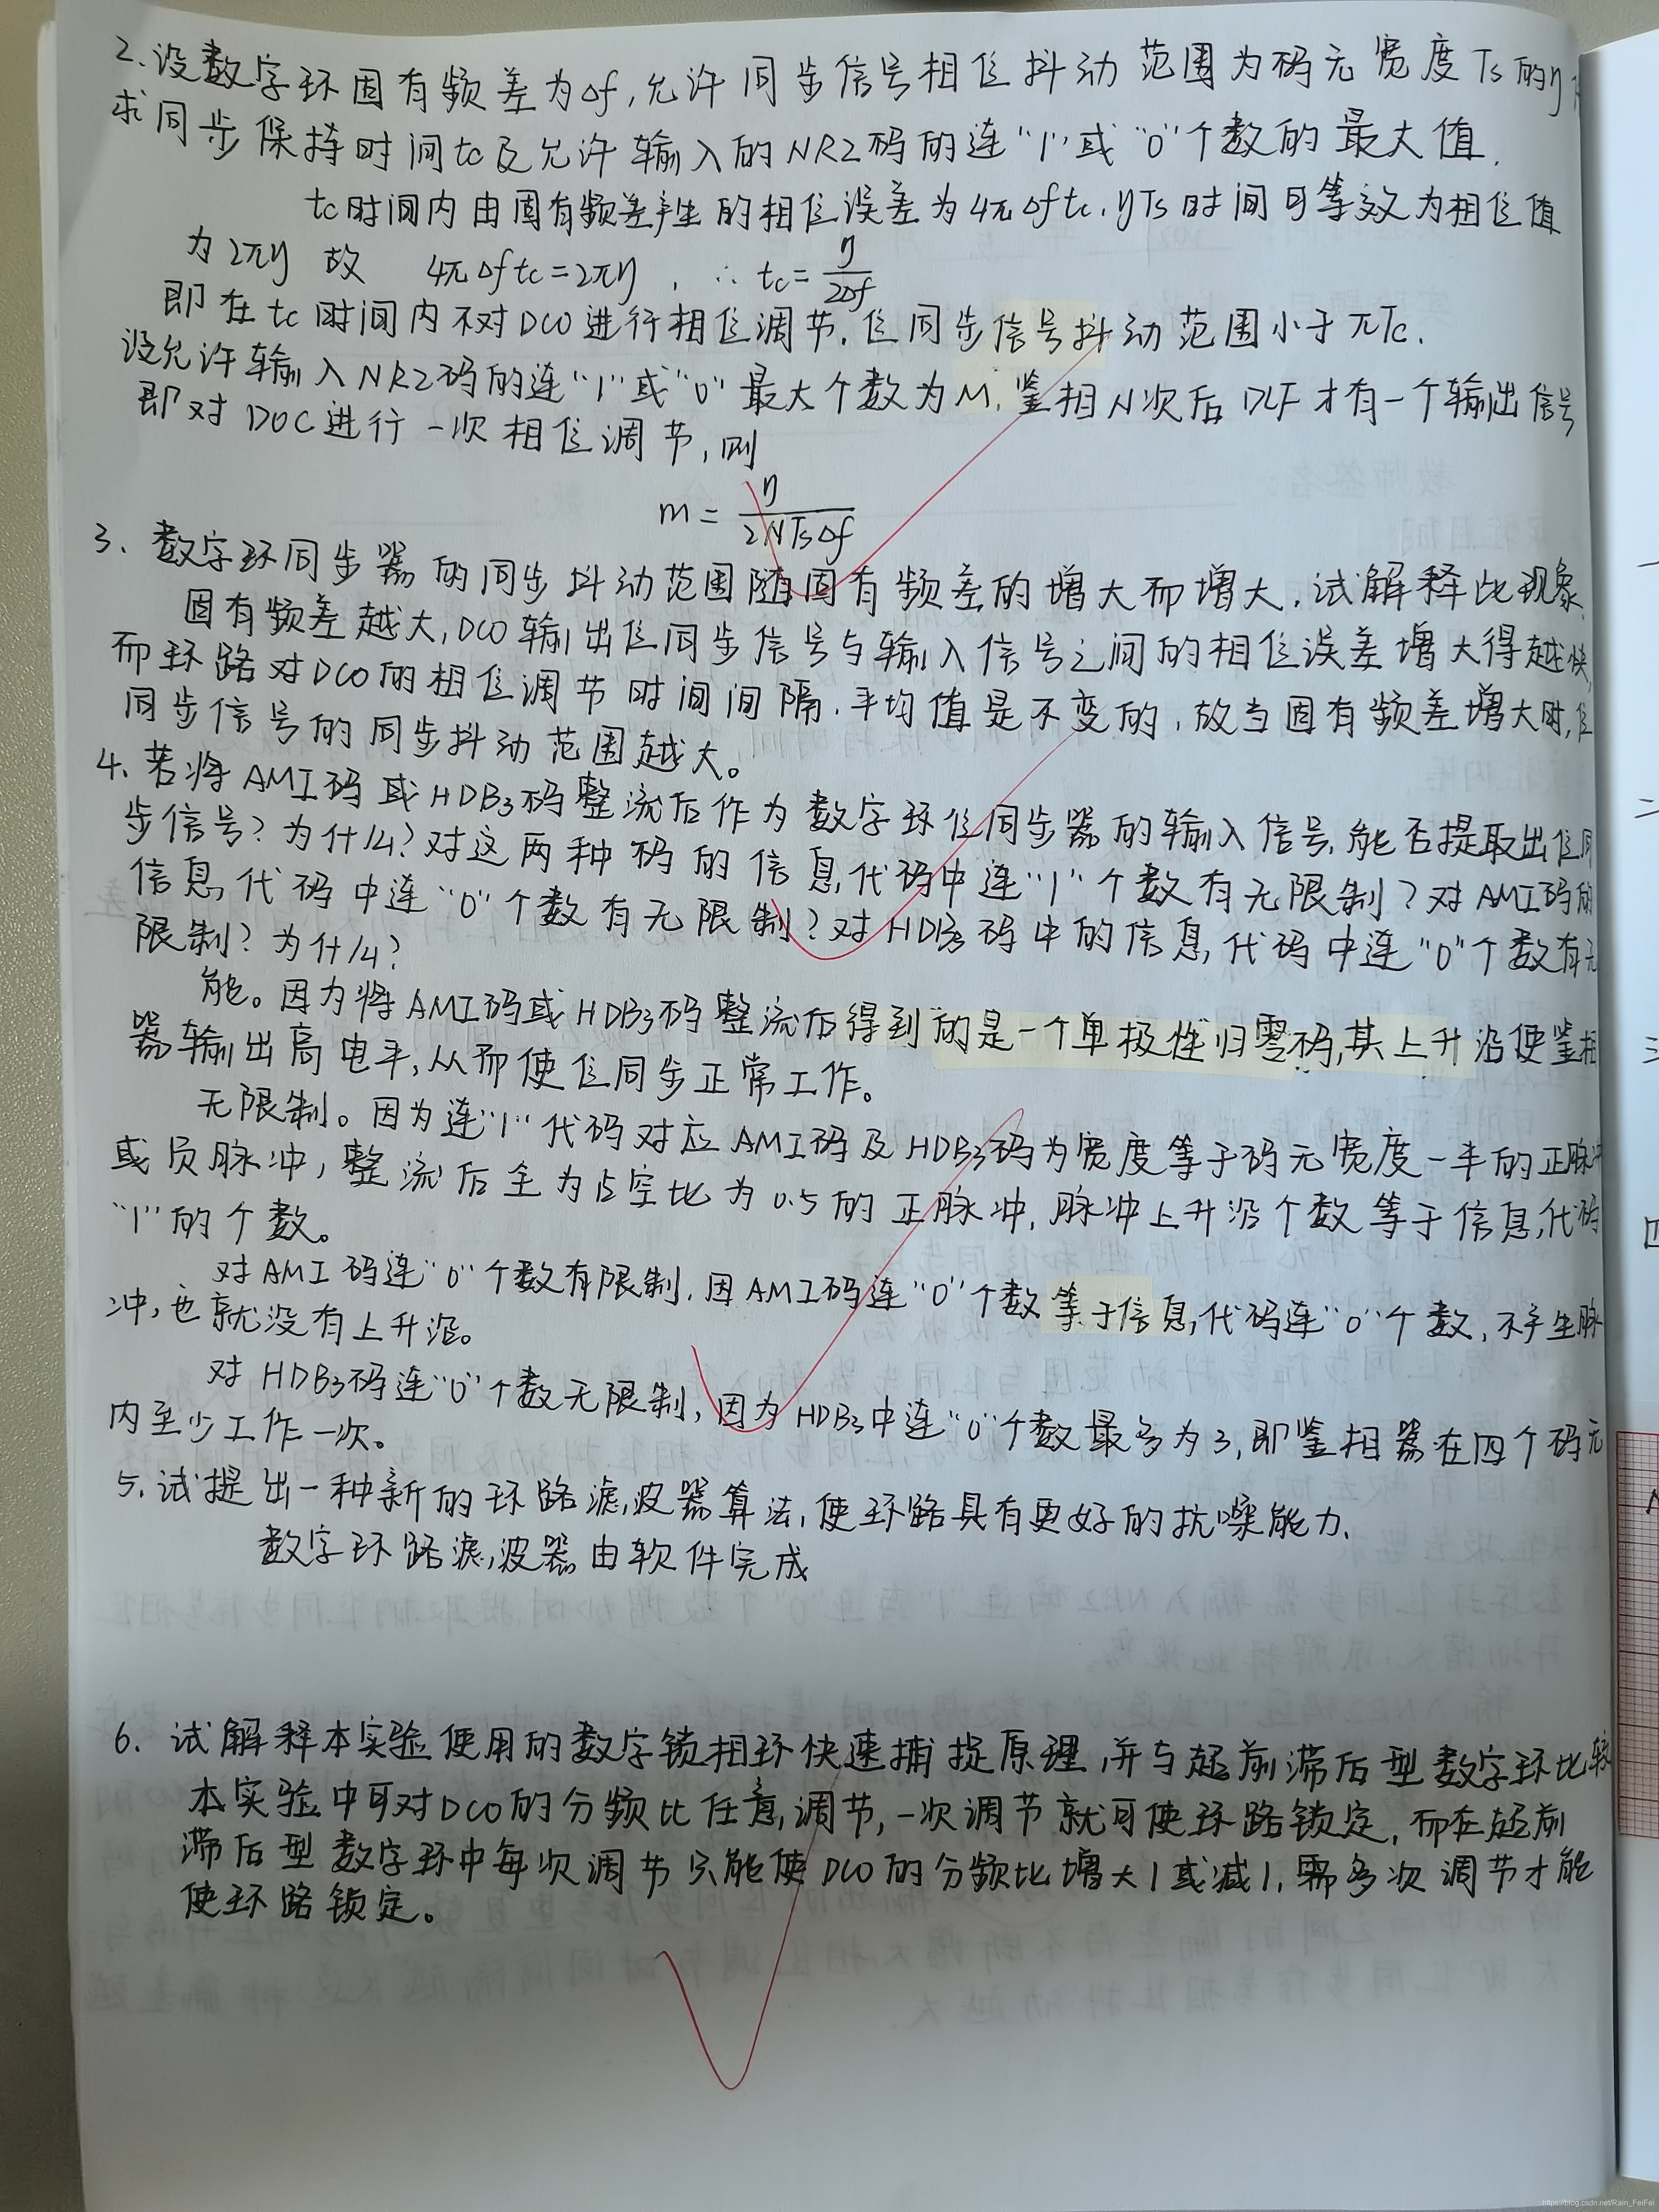 2.设数字环固有频差为Δf,允许同步信号相位抖动范围为码元宽度Ts的η
求同步保持时间tc及允许输入的NRZ码的连"1"或"0"个数的最大值.
tc时间内由固有频差产生的相位误差为4πΔftc.ηTs时间可等效为相位值
为2πη 故 4πΔftc=2πη, ∴ tc=η/2Δf
即在tc时间内不对DCO进行相位调节.位同步信号抖动范围小于πTc.
设允许输入NRZ码的连"1"或"0"最大个数为M,鉴相N次后DLF才有一个输出信号
即对DOC进行一次相位调节,则
m=η/2NTsΔf
3.数字环同步器的同步抖动范围随固有频差的增大而增大.试解释此现象.
固有频差越大,DCO输出位同步信号与输入信号之间的相位误差增大得越快,
而环路对DCO的相位调节时间间隔.平均值是不变的,故当固有频差增大时,位
同步信号的同步抖动范围越大。
4.若将AMI码或HDB3码整流后作为数字环位同步器的输入信号,能否提取出位同
步信号?为什么?对这两种码的信息代码中连"1"个数有无限制?对AMI码的
信息代码中连"0"个数有无限制?对HDB3码中的信息代码中连"0"个数有无
限制?为什么?
能。因为将AMI码或HDB3码整流后得到的是一个单极性归零码,其上升沿使鉴相
器输出高电平,从而使位同步正常工作。
无限制。因为连"1"代码对应AMI码及HDB3码为宽度等于码元宽度一半的正脉冲
或负脉冲,整流后全为占空比为0.5的正脉冲,脉冲上升沿个数等于信息代码
"1"的个数。
对AMI码连"0"个数有限制.因AMI码连"0"个数等于信息代码连"0"个数,不产生脉
冲,也就没有上升沿。
对HDB3码连"0"个数无限制,因为HDB3中连"0"个数最多为3,即鉴相器在四个码元
内至少工作一次。
5.试提出一种新的环路滤波器算法,使环路具有更好的抗噪能力.
数字环路滤波器由软件完成
6.试解释本实验使用的数字锁相环快速捕捉原理,并与超前滞后型数字环比较
本实验中可对DCO的分频比任意调节,一次调节就可使环路锁定,而在超前
滞后型数字环中每次调节只能使DCO的分频比增大1或减1,需多次调节才能
使环路锁定。
https://blog.csdn.net/Rain_FeiFei